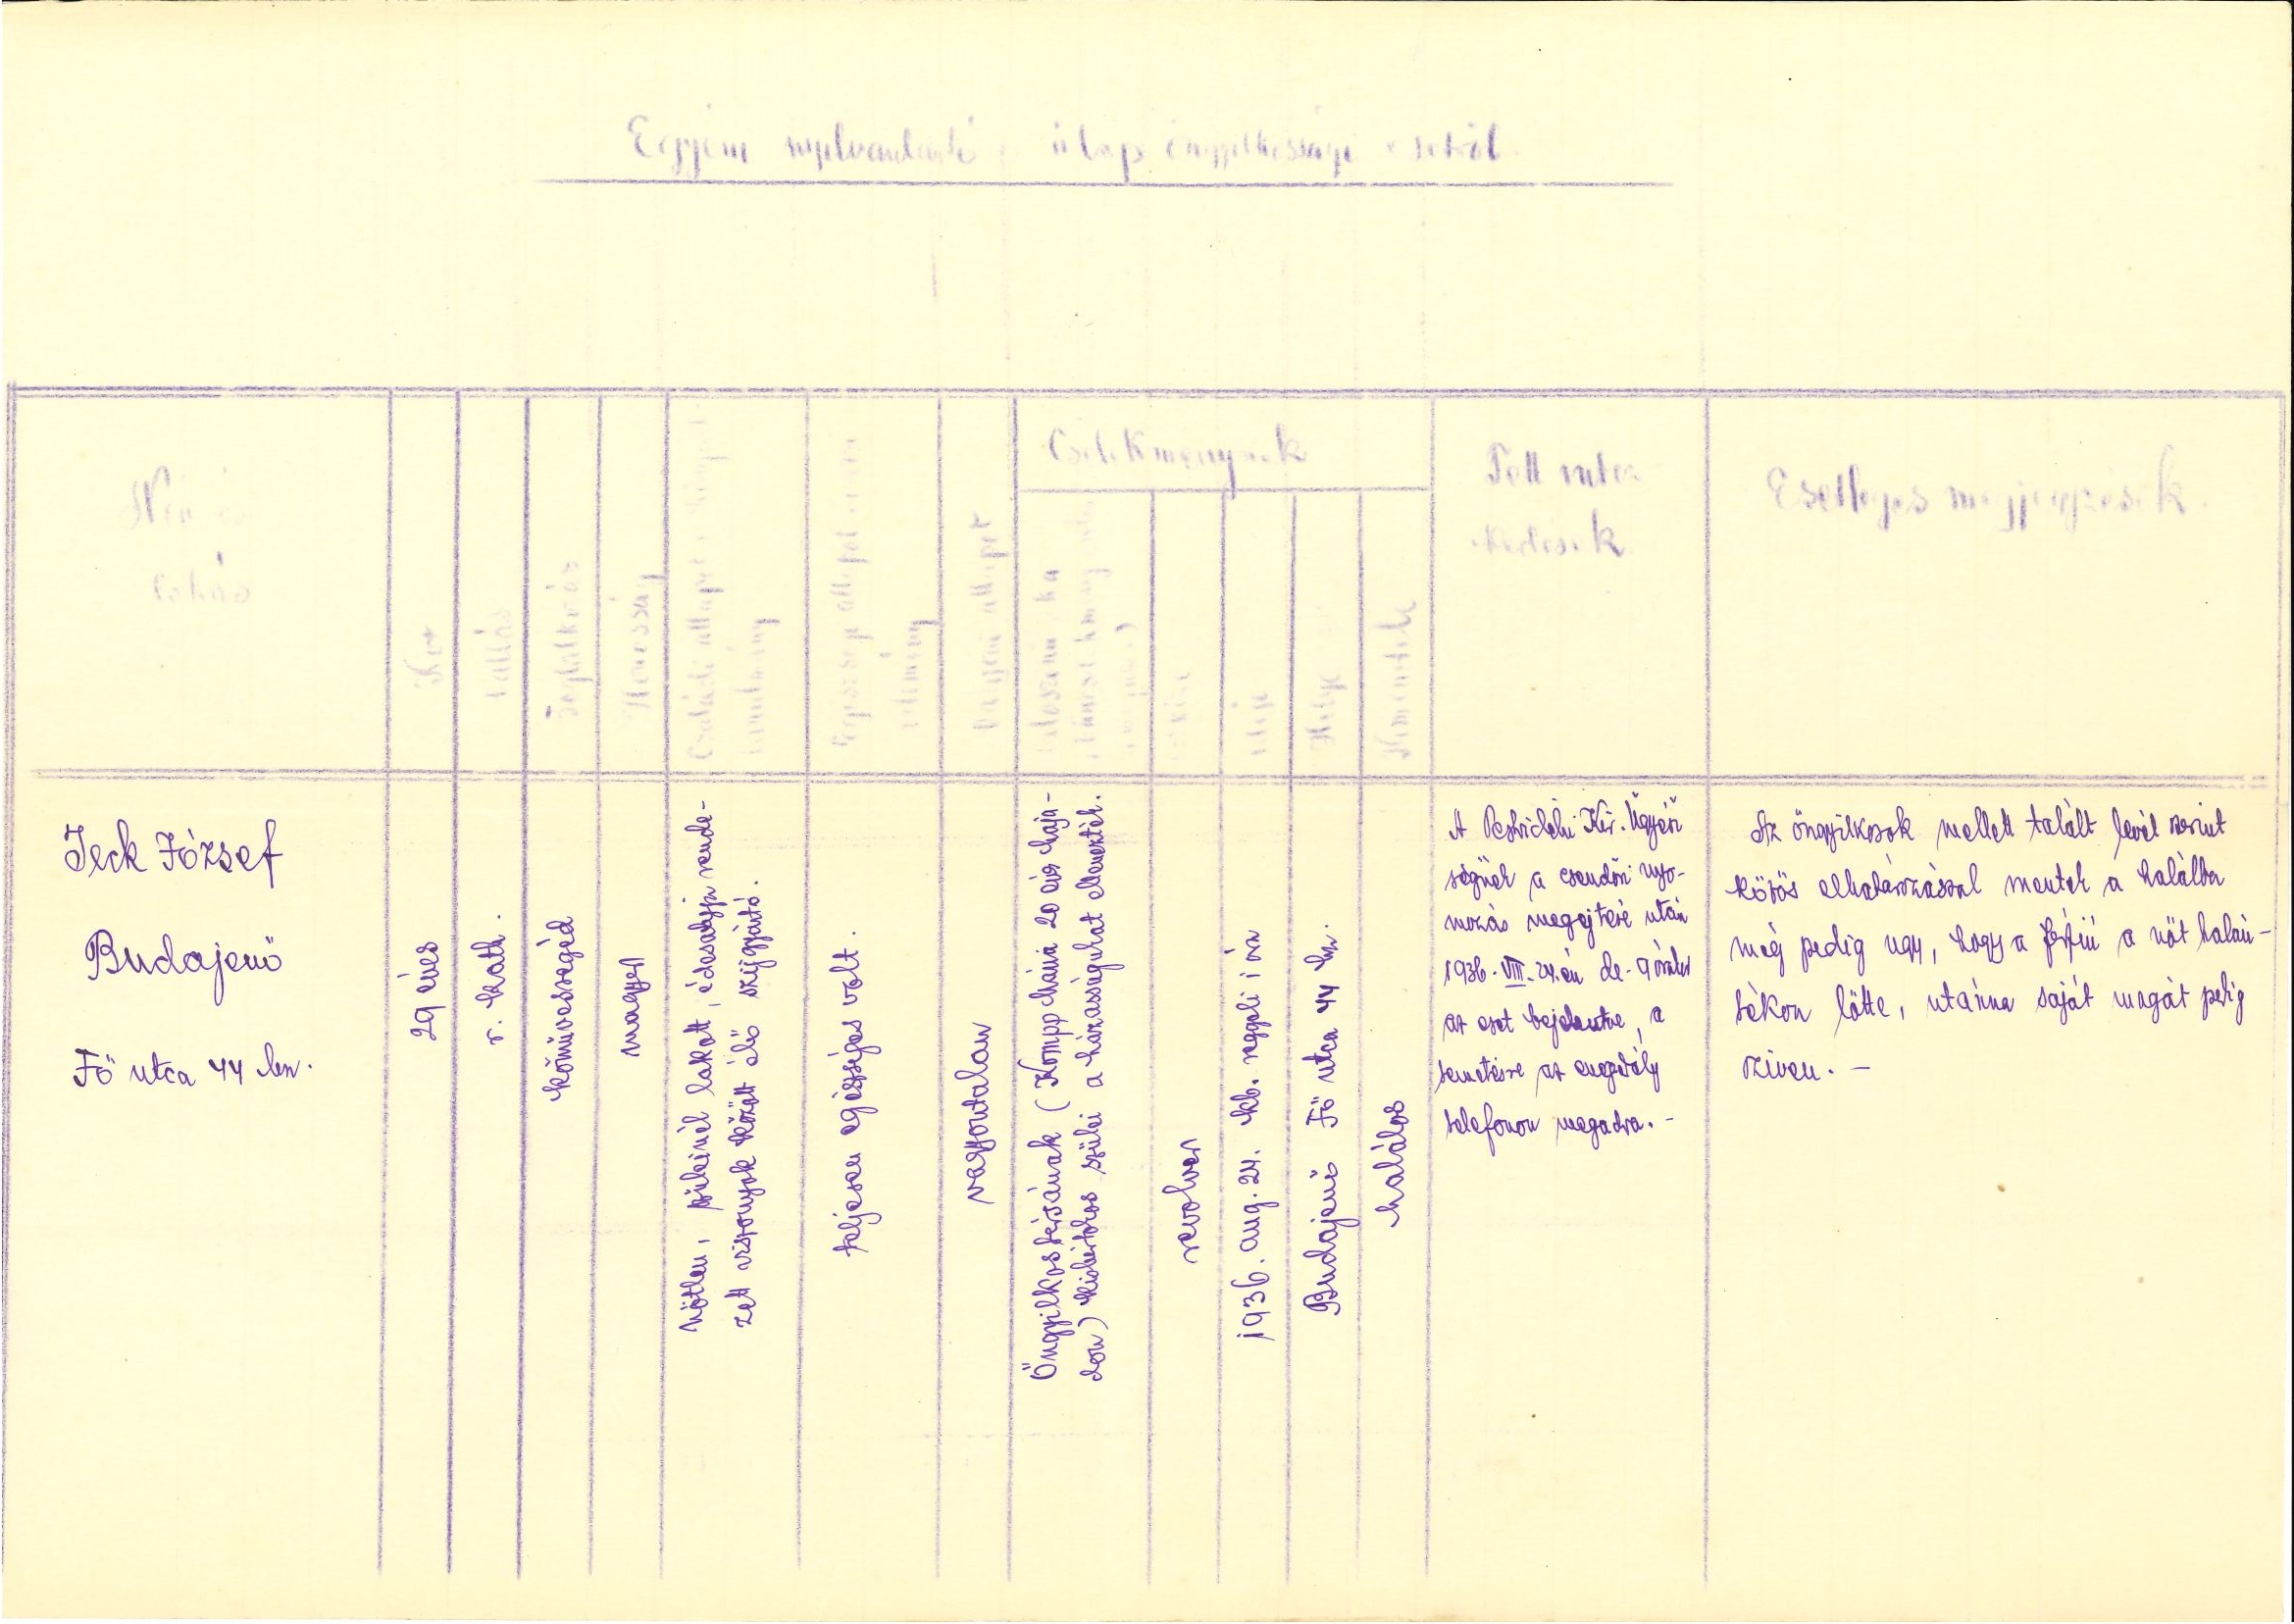 Egyéni nyilvántartó űrlap öngyilkossági esetről
Név és
lakás
Kor
vallás
Foglalkozás
Honosság
Családi állapot
körülmény
Egészségi állapot
vélemény
Vagyoni állapot
Cselekménynek
oka
módja
ideje
Helye
Tett intéz-
kedések
Esetleges megjegyzések
Jeck József
Budajenő
Fő utca 44 hsz.
29 éves
r. kath.
kőművessegéd
magyar
Nőtlen, szüleinél lakott, édesatyja rende-
zett viszonyok között élő szijgyártó.
teljesen egészséges volt.
vagyontalan
Öngyilkostársának (Kompp Mária 20 éves haja-
don) kisbirtokos szülei a házasságukat ellenezték.
revolver
1936. aug. 24. kb. reggeli i óra
Budajenő Fő utca 44 hsz.
halálos
A Pestvidéki Kir. Ügyész
ségnek a csendőri nyo-
mozás megejtése után
1936. VIII. 24.-én de. 9 órakor
az eset bejelentve, a
temetésre az engedély
telefonon megadva. -
Az öngyilkosok mellett talált levél szerint
közös elhatározással mentek a halálba
még pedig ugy, hogy a férfiú a nőt halán-
tékon lőtte, utánna saját magát pedig
sziven. -